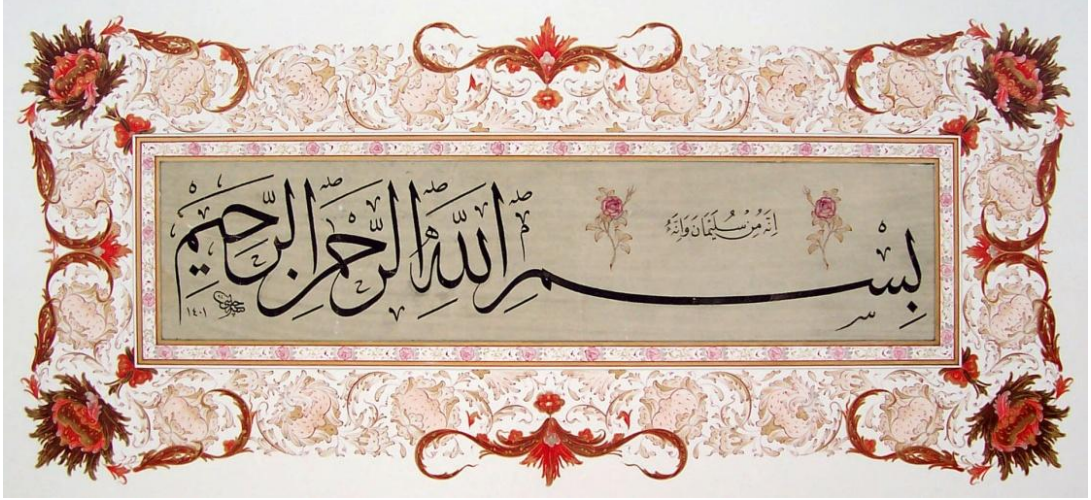 اِنَّهُ مِنْ سُلَيْمَانَ وَاِنَّهُ
بِسْمِ اللّٰهِ الرَّحْمٰنِ الرَّحِيمِ
١٤٠١